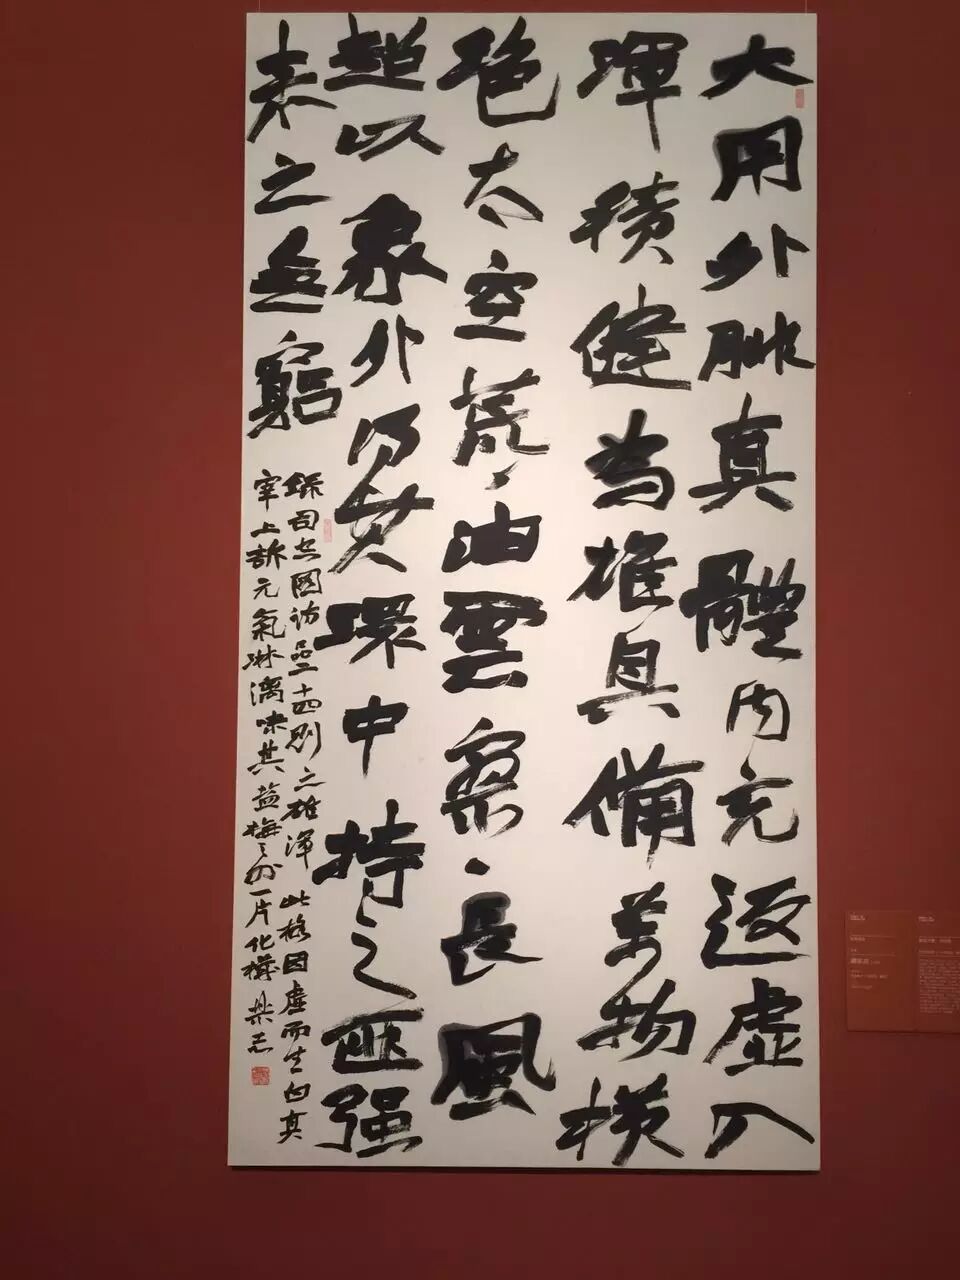 大用外腓真體內充返虛入
渾積健為雄具備萬物橫
絕太空荒荒油雲寥寥長風
超以象外得其環中持之匪强
来之無窮
錄司空圖詩品二十四則之雄渾 此格因虛而生自真
宰上訴元氣淋漓味其盐梅之外一片化機